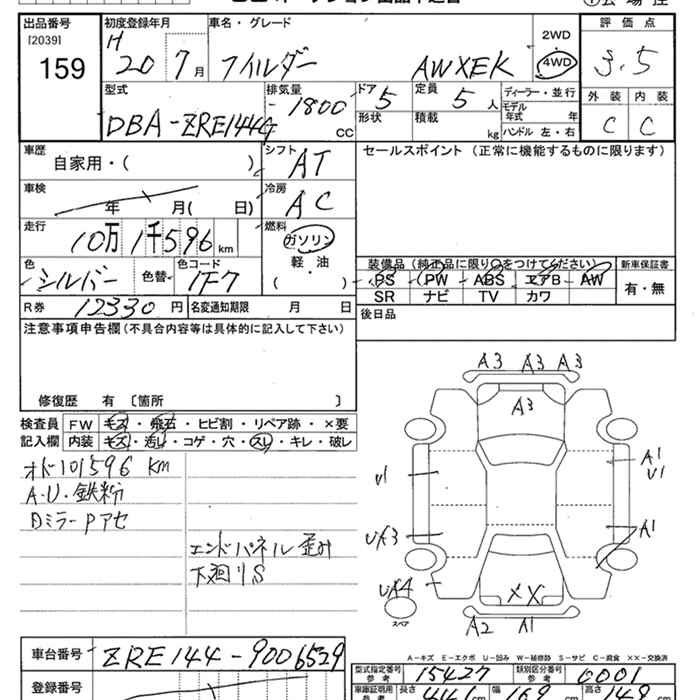 出品番号 初度登録年月 車名・グレード 評価点
[2039] H 2WD
159 20 7月 フィルダー AWXEK 4WD 3.5
型式 排気量 ドア 定員 ディーラー・並行 外装 内装
DBA-ZRE144G 1800CC 5 5人 モデル年式 年 C C
形状 積載 kg ハンドル 左・右
車歴 シフト セールスポイント (正常に機能するものに限ります)
自家用・( ) AT
車検 冷房
年 月( 日) AC
走行 燃料
10万1千596km ガソリン
軽・油
( )
色 色替 色コード 装備品(純正品に限り〇をつけてください) 新車保証書
シルバー 1F7 PS PW ABS エアB AW 有・無
SR ナビ TV カワ
R券 12330円 名変通知期限 月 日 後日品
注意事項申告欄(不具合内容等は具体的に記入して下さい)
修復歴 有 〔箇所 〕
検査員 FW キズ・飛石・ヒビ割・リペア跡・×要
記入欄 内装 キズ・汚れ・コゲ・穴・スレ・キレ・破レ
オド101596 km
A・U・鉄粉
DミラーPアセ
エンドパネル歪み
下廻りS
A3 A3 A3
A3
U1
A1
U1
UA3
A1
UA4
スペア
XX
A2 A1
A-キズ E-エクボ U-凹み W-補修跡 S-サビ C-腐食 XX-交換済
車台番号 ZRE144-9006529
型式指定番号 参考 15427 類別区分番号 参考 0001
登録番号
車庫証明用 参考 長さ 幅 高さ